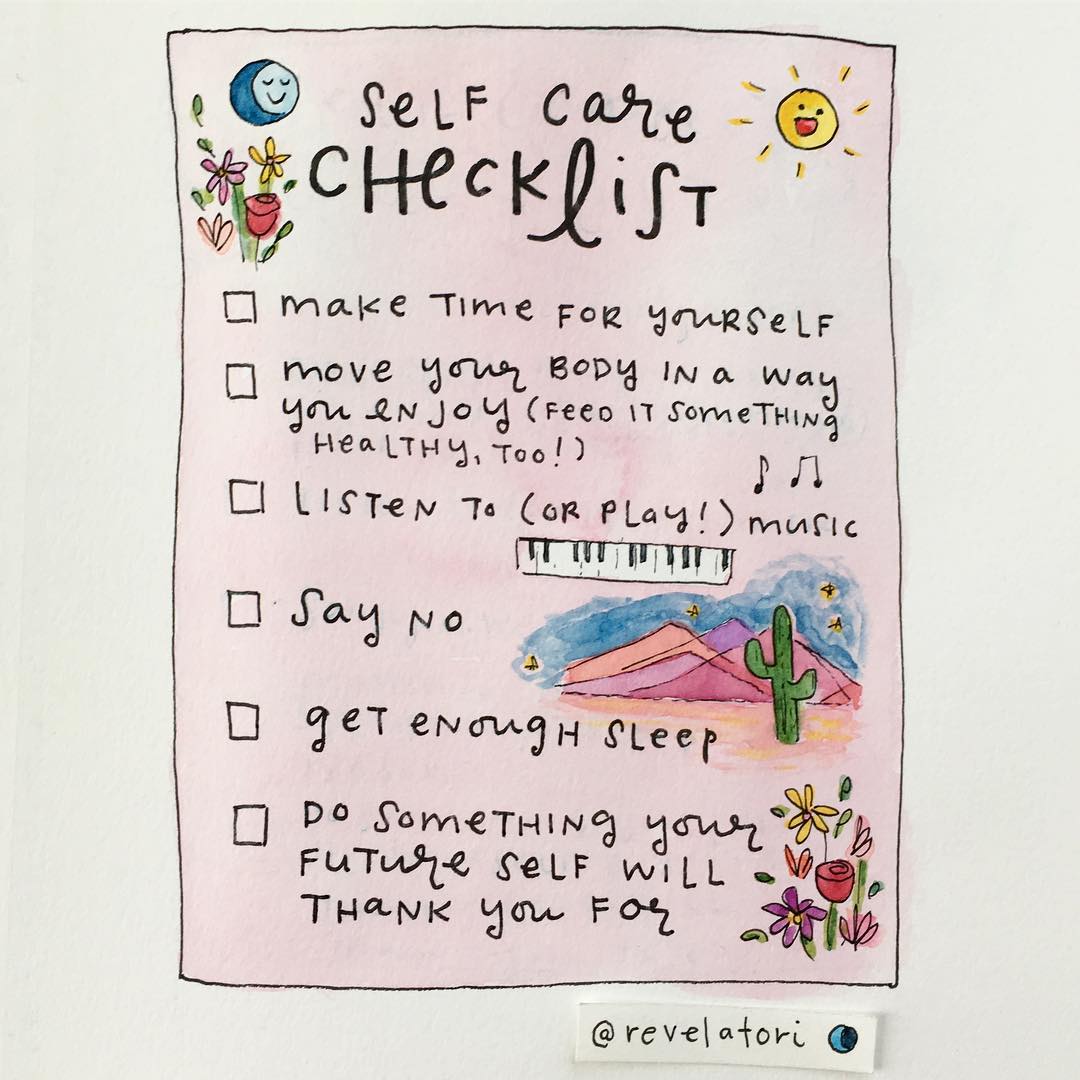 SELF CARE
CHECKLIST
MAKE TIME FOR YOURSELF
MOVE YOUR BODY IN A WAY
YOU ENJOY (FEED IT SOMETHING
HEALTHY, TOO!)
LISTEN TO (OR PLAY!) MUSIC
SAY NO
GET ENOUGH SLEEP
DO SOMETHING YOUR
FUTURE SELF WILL
THANK YOU FOR
@revelatori